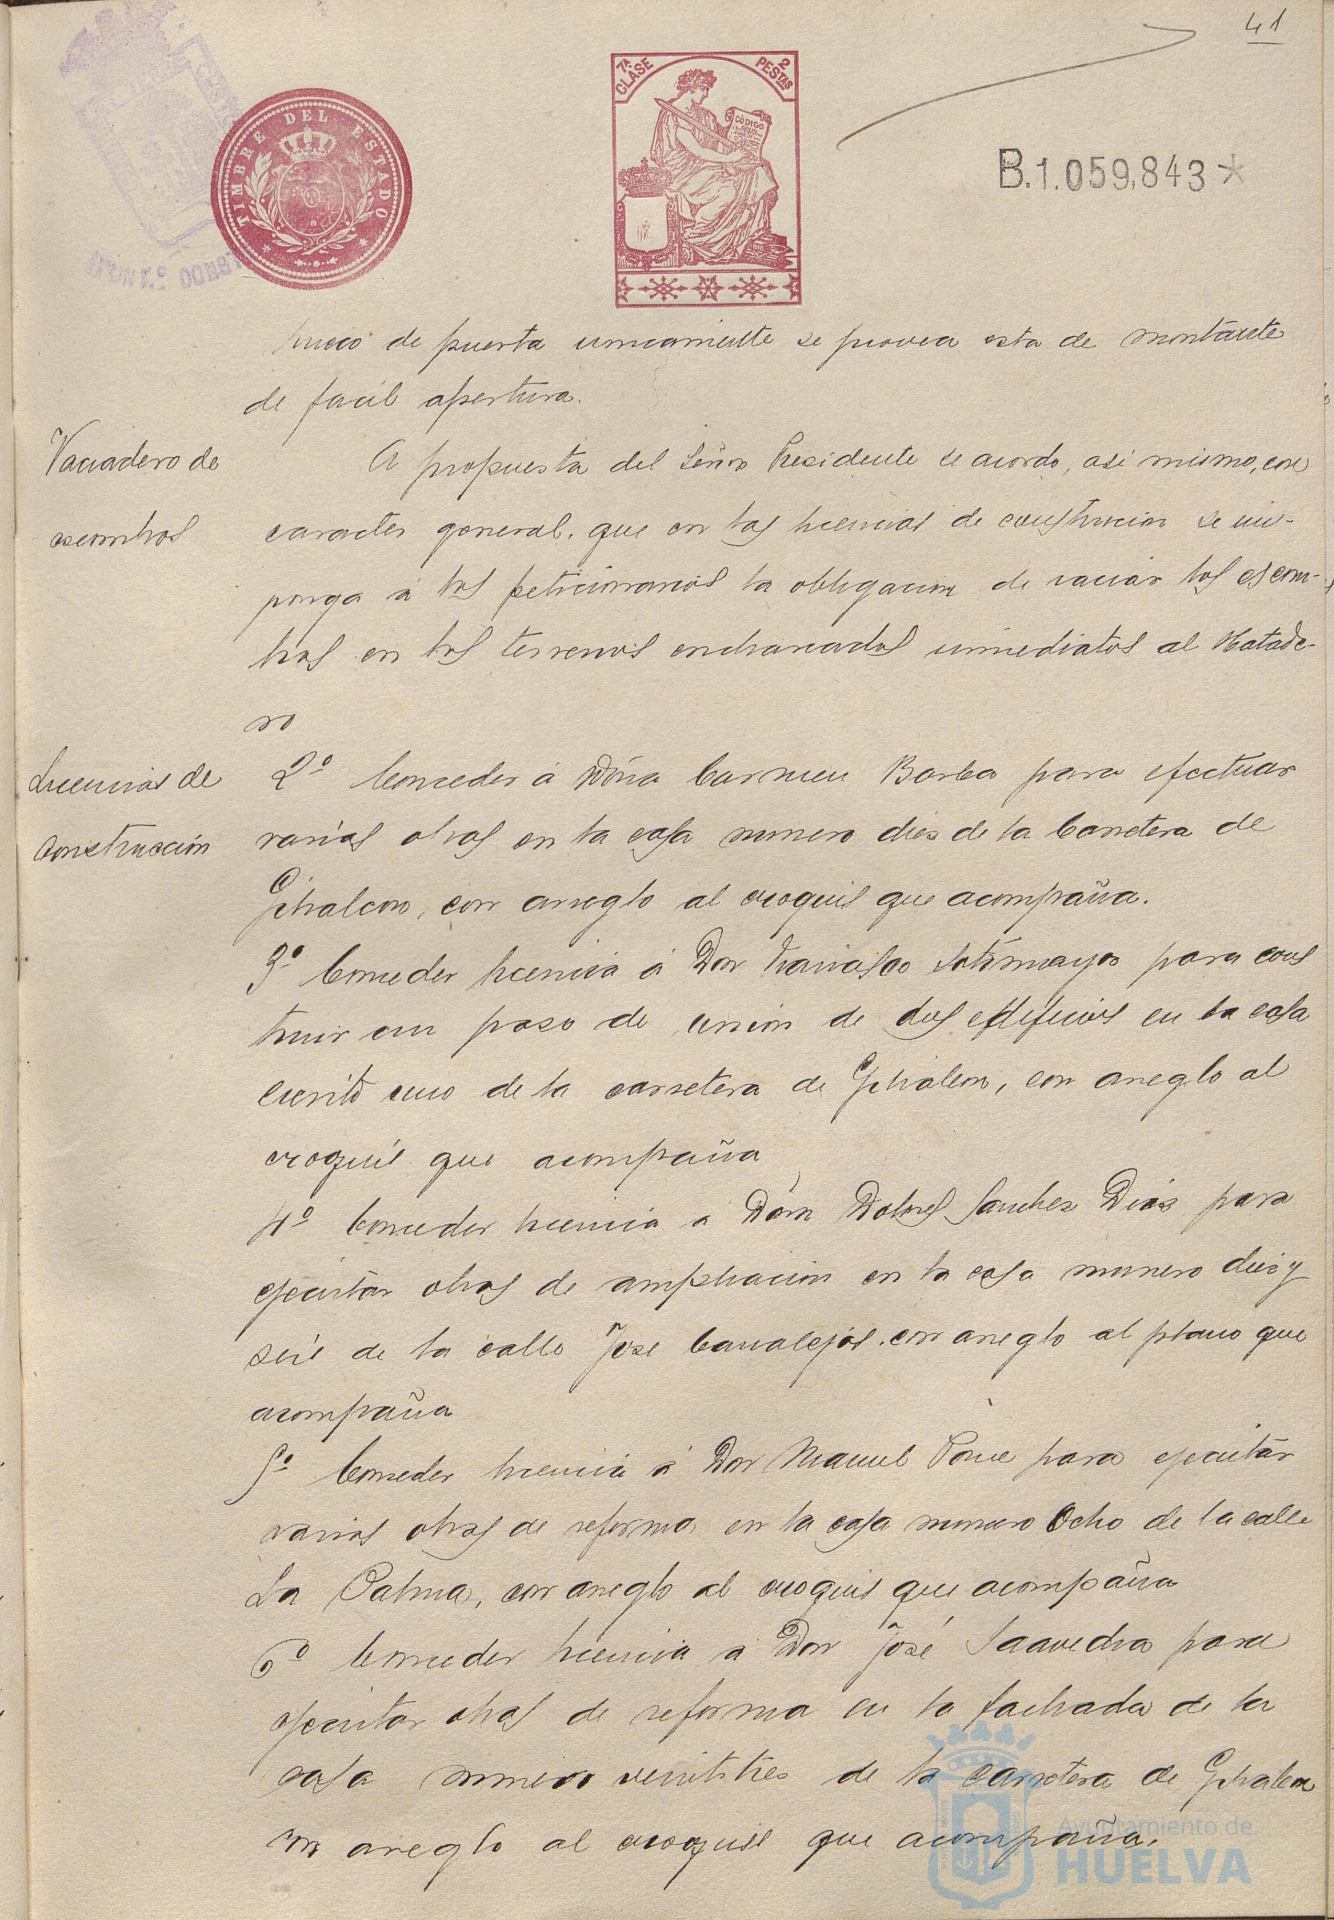 41
7ª CLASE
2 PESTAS
CÓDIGO
TIMBRE DEL ESTADO
B.1.059,843*
hueco de puerta unicamente se provea esta de montante
de facil apertura.
Vaciadero de
escombros
A propuesta del Señor Presidente se acordo, asi mismo, con
caracter general, que en las licencias de construcción se im-
ponga á los peticionarios la obligacion de vaciar los escom-
bros en los terrenos encharcados inmediatos al Matade-
ro
Licencias de
construcción
2º Conceder á Doña Carmen Borba para efectuar
varias obras en la casa numero dies de la Carretera de
Gibraleon, con arreglo al croquis que acompaña.
3º Conceder licencia á Don Francisco Sotomayor para cons
truir un paso de unión de dos edificios en la casa
ciento uno de la carretera de Gibraleon, con arreglo al
croquis que acompaña
4º Conceder licencia a Doña Dolores Sanchez Dias para
ejecutar obras de ampliacion en la casa numero dies y
seis de la calle José Canalejas, con arreglo al plano que
acompaña
5º Conceder licencia á Don Manuel Ponce para ejecutar
varias obras de reforma en la casa numero Ocho de la calle
La Palma, con arreglo al croquis que acompaña
6º Conceder licencia a Don José Saavedra para
ejecutar obras de reforma en la fachada de la
casa numero veintitres de la Carretera de Gibraleon
con arreglo al croquis que acompaña.
Ayuntamiento de
HUELVA